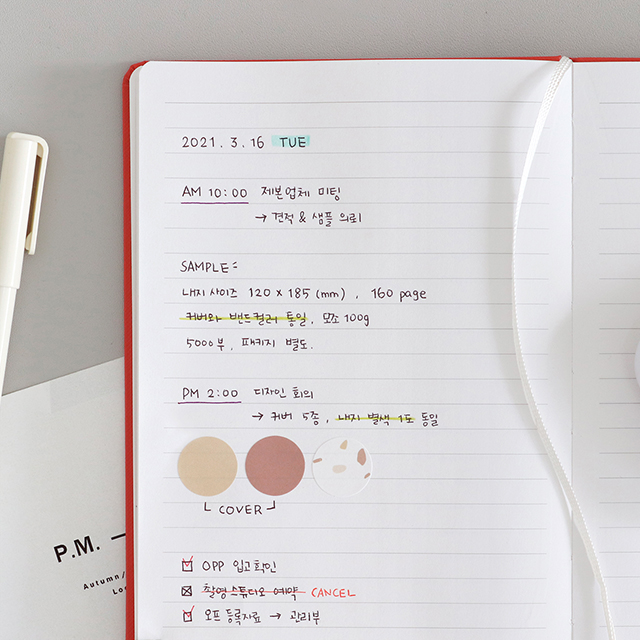 2021. 3. 16 TUE
AM 10:00 제본업체 미팅
→ 견적 & 샘플 의뢰
SAMPLE
내지 사이즈 120 x 185 (mm), 160 page
커버와 밴드컬러 통일, 모조 100g
5000부, 패키지 별도.
PM 2:00 디자인 회의
→ 커버 5종, 내지 별색 1도 동일
COVER
OPP 입고확인
촬영 스튜디오 예약 CANCEL
오프 등록자료 → 관리부
P.M. —
Autumn/
Lo